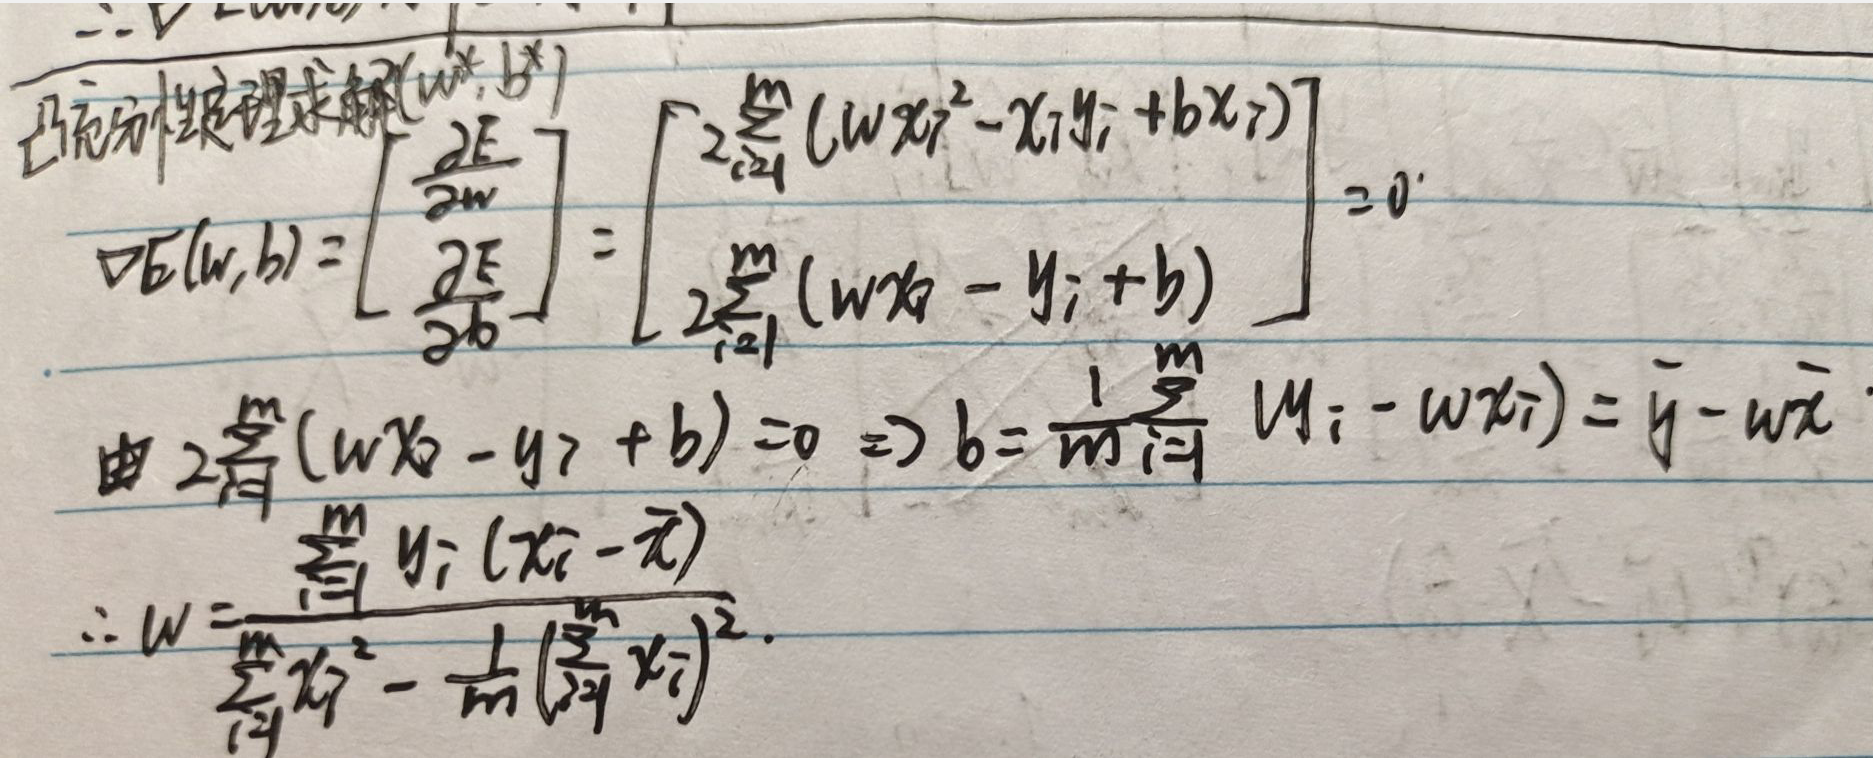 凸充分性定理求解(w*, b*)
∇E(w,b) = [∂E/∂w ∂E/∂b] = [2∑_{i=1}^{m}(wx_i² - x_iy_i + bx_i) 2∑_{i=1}^{m}(wx_i - y_i + b)] = 0
由 2∑_{i=1}^{m}(wx_i - y_i + b) = 0 => b = 1/m ∑_{i=1}^{m}(y_i - wx_i) = ȳ - wx̄
∴ w = ∑_{i=1}^{m} y_i(x_i - x̄) / ∑_{i=1}^{m} x_i² - 1/m (∑_{i=1}^{m} x_i)².